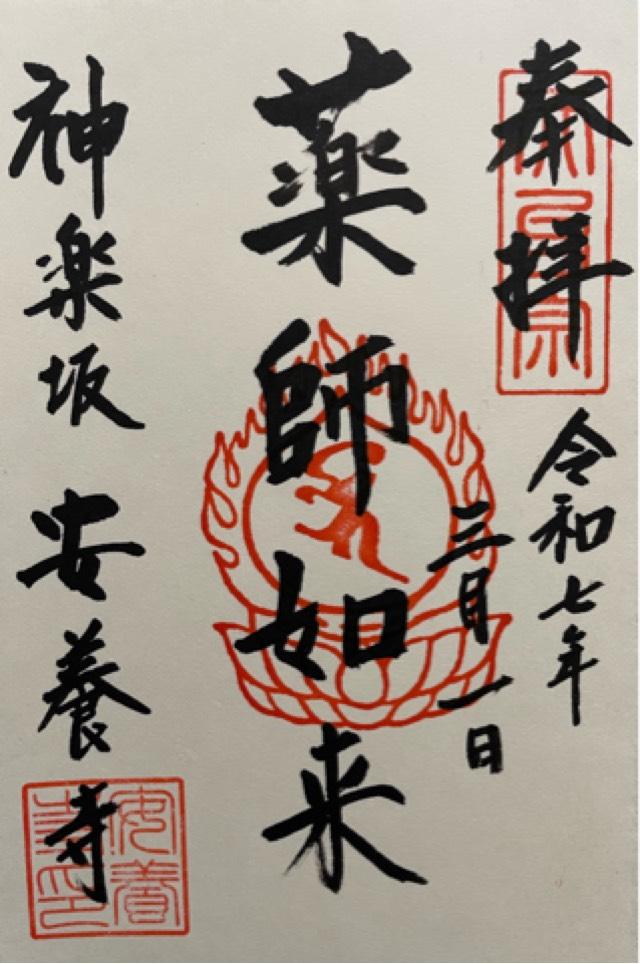 奉拝
令和七年
三月一日
薬師如来
神楽坂 安養寺
安養寺印